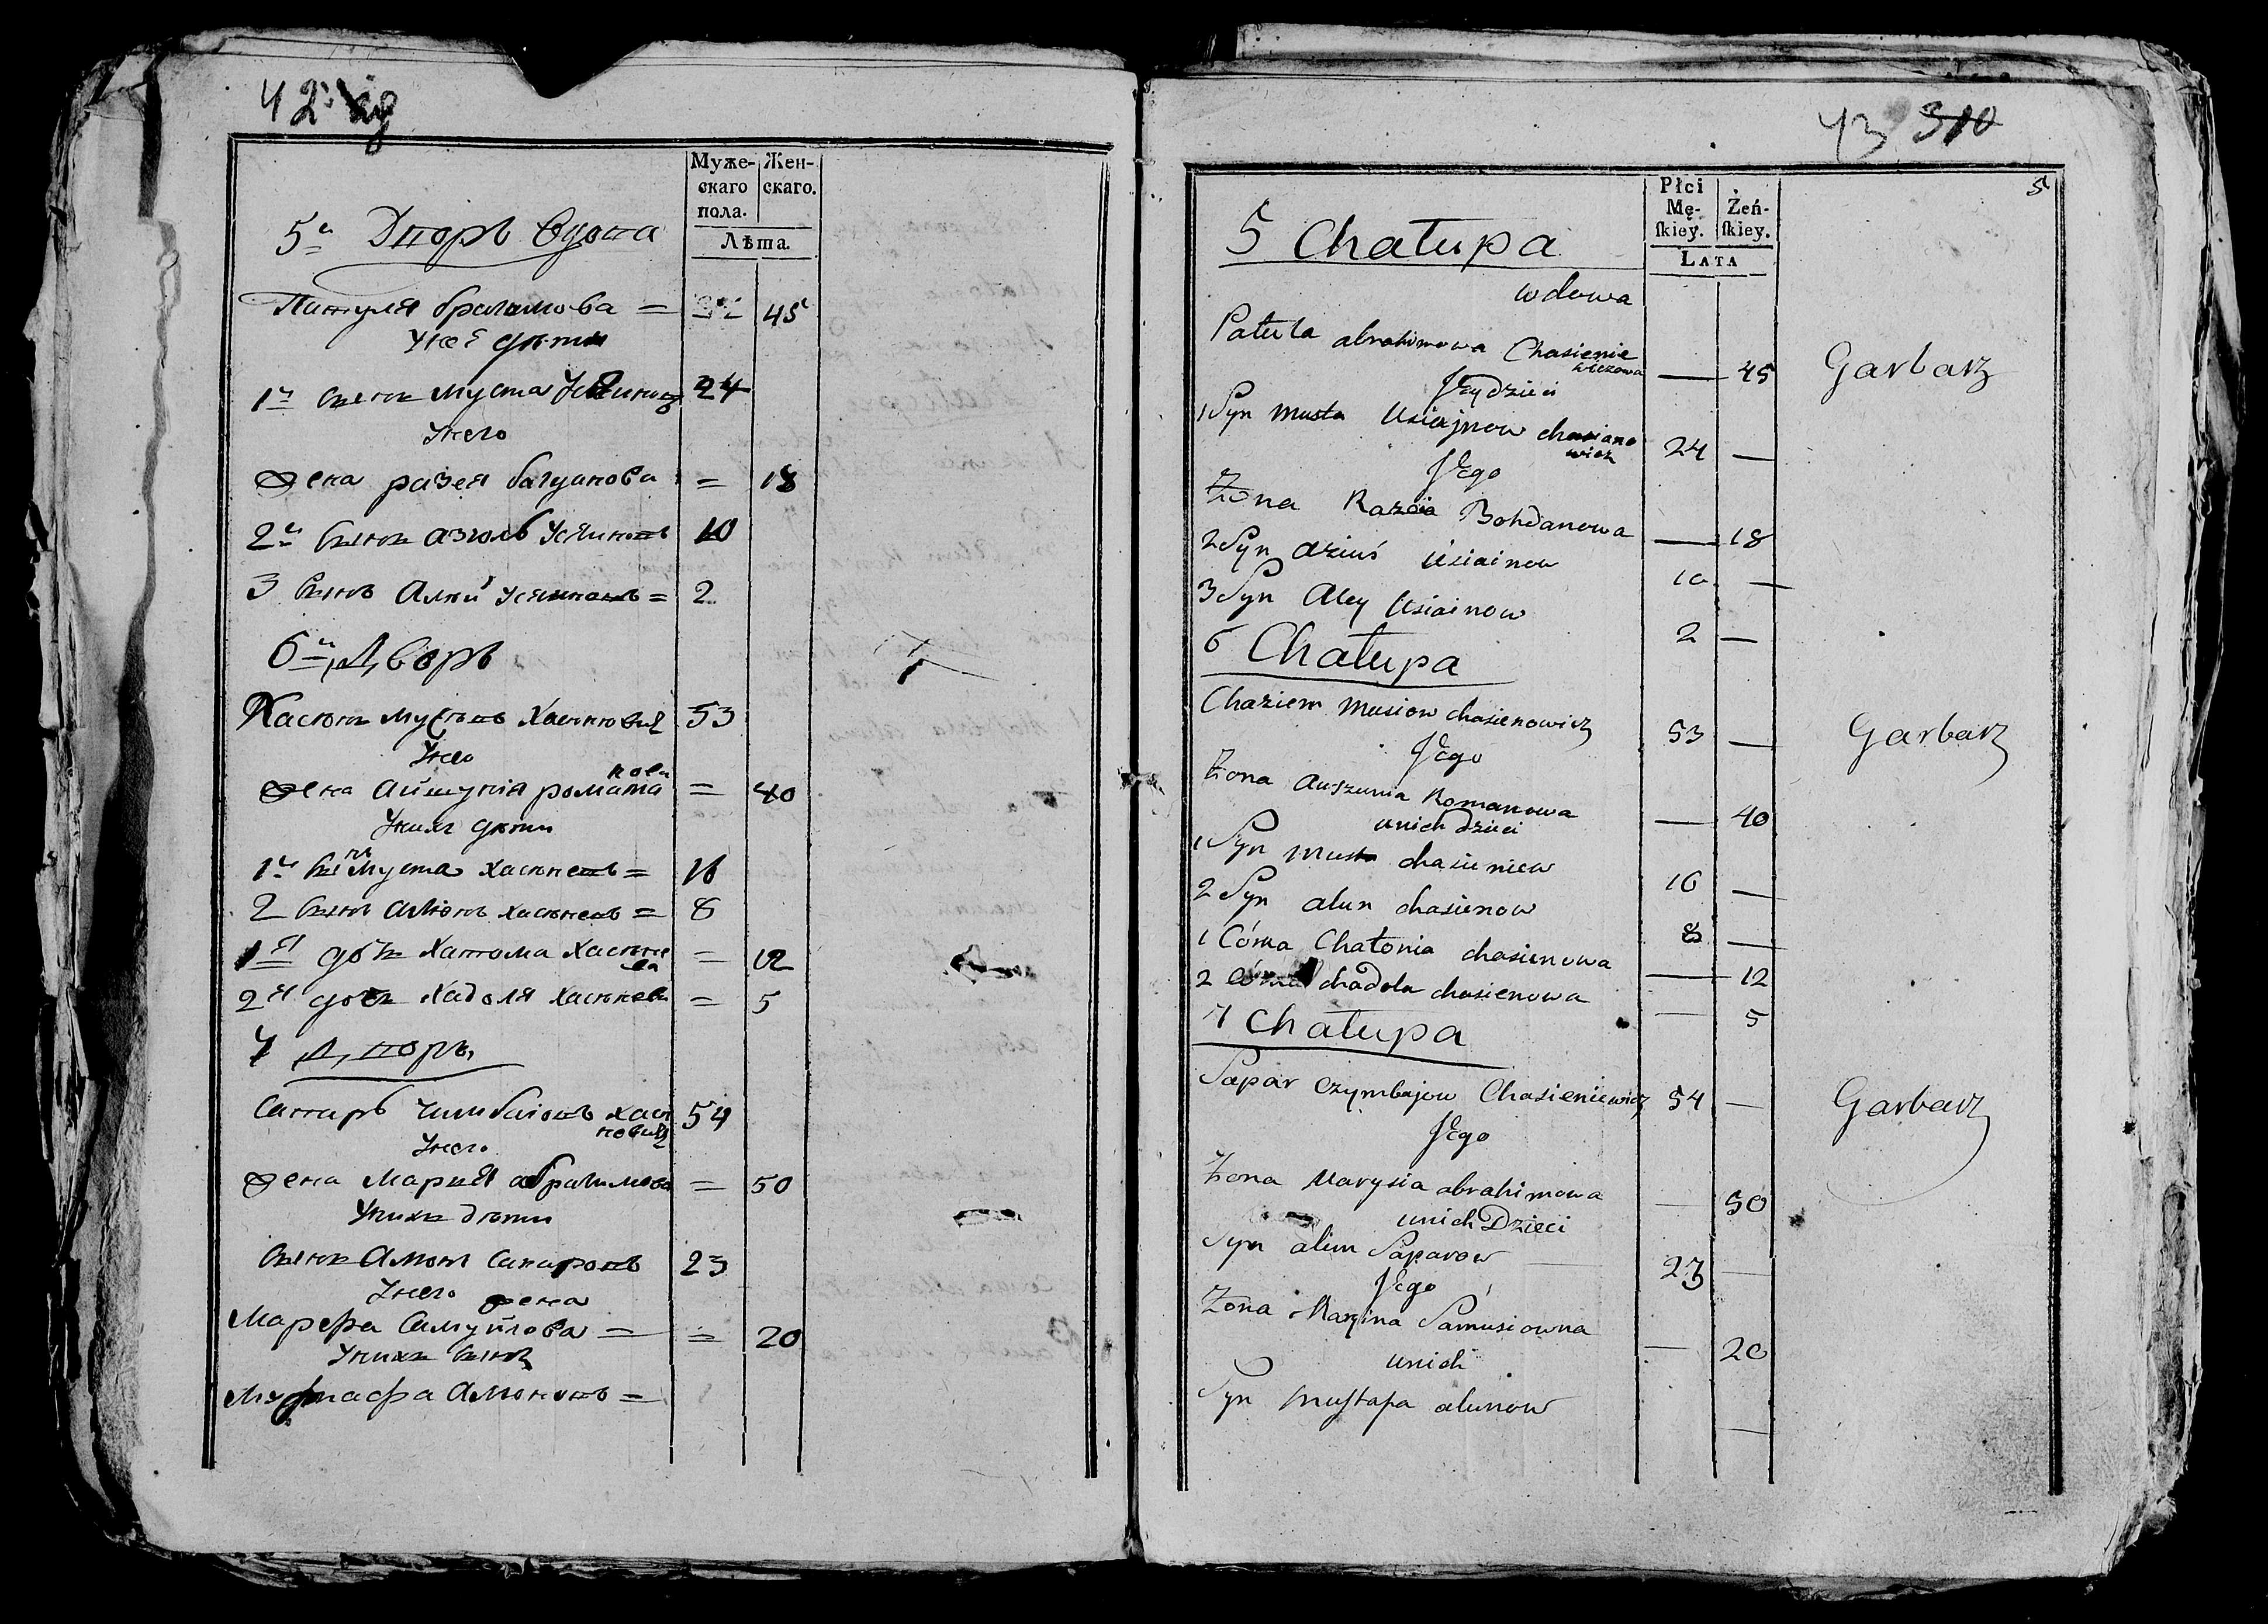 42
Муже-
скаго
пола.
Жен-
скаго.
Лѣта
5й Дворъ вдова
Патуля браимова = 45
у неё дѣти
1й сынъ муста Усяиновъ 24
У него
жена разея багданова = 18
2й сынъ азюль Усяиновъ 10
3 сынъ Алей Усяиновъ = 2
6й Дворъ
Хасюнъ мусѣовъ Хасѣновичъ 53
У него
жена айшуня романова = 40
У нихъ дѣти
1й сынъ муста хасѣневъ = 16
2 сынъ алюнъ хасѣневъ = 8
1я дочь хатома хасѣнева = 12
2я дочь Хадоля хасѣнева = 5
7 Дворъ
Сапаръ Чимбаіовъ хасѣновичъ 54
У него
жена Марыя абраимова = 50
У нихъ дѣти
сынъ Алюнъ Сапаровъ 23
У него жена
Марефа Самуйлова = = 20
У нихъ сынъ
Мустафа Алюновъ =
43 310
Płci
Mę-
ſkiey.
Żeń-
ſkiey.
LATA
5
5 Chałupa
wdowa
Patula abrahimowa Chasienie
wiczowa — 45 Garbarz
Jey dzieci
1 Syn Musta Usiajnow chasiano
wicz 24 —
Jego
Żona Razia Bohdanowa — 18
2 Syn aziuś Usiainow 10 —
3 Syn Aley Usiainow 2 —
6 Chałupa
Chaziem Musiow chasienowicz 53 — Garbarz
Jego
Żona Auszunia Romanowa — 40
u nich dzieci
1 Syn Musta chasieniew 16 —
2 Syn alun chasienow 8 —
1 Córka Chatonia chasienowa — 12
2 Córka chadola chasienowa — 5
7 Chałupa
Sapar Czymbajow Chasieniewicz 54 — Garbarz
Jego
Żona Marysia abrahimowa — 50
u nich Dzieci
Syn alim Saparow 23 —
Jego
Żona Maryina Samusiowna — 20
u nich
Syn Mustafa alunow —